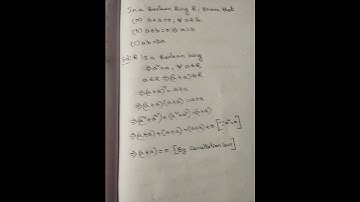 In a Boolean Ring R, show that
(a) a+a=0, ∀ a∈R.
(b) a+b=0 ⇒ a=b
(c) ab=ba
Solⁿ: R is a Boolean ring
⇒ a²=a, ∀ a∈R
a∈R ⇒ (a+a)∈R
⇒ (a+a)² = a+a
⇒ (a+a)(a+a) = a+a
⇒ (a²+a²)+(a²+a²)=(a+a)
⇒ (a+a)+(a+a)=(a+a)+0 [∵a²=a]
⇒ (a+a)=0 [By Cancellation law]